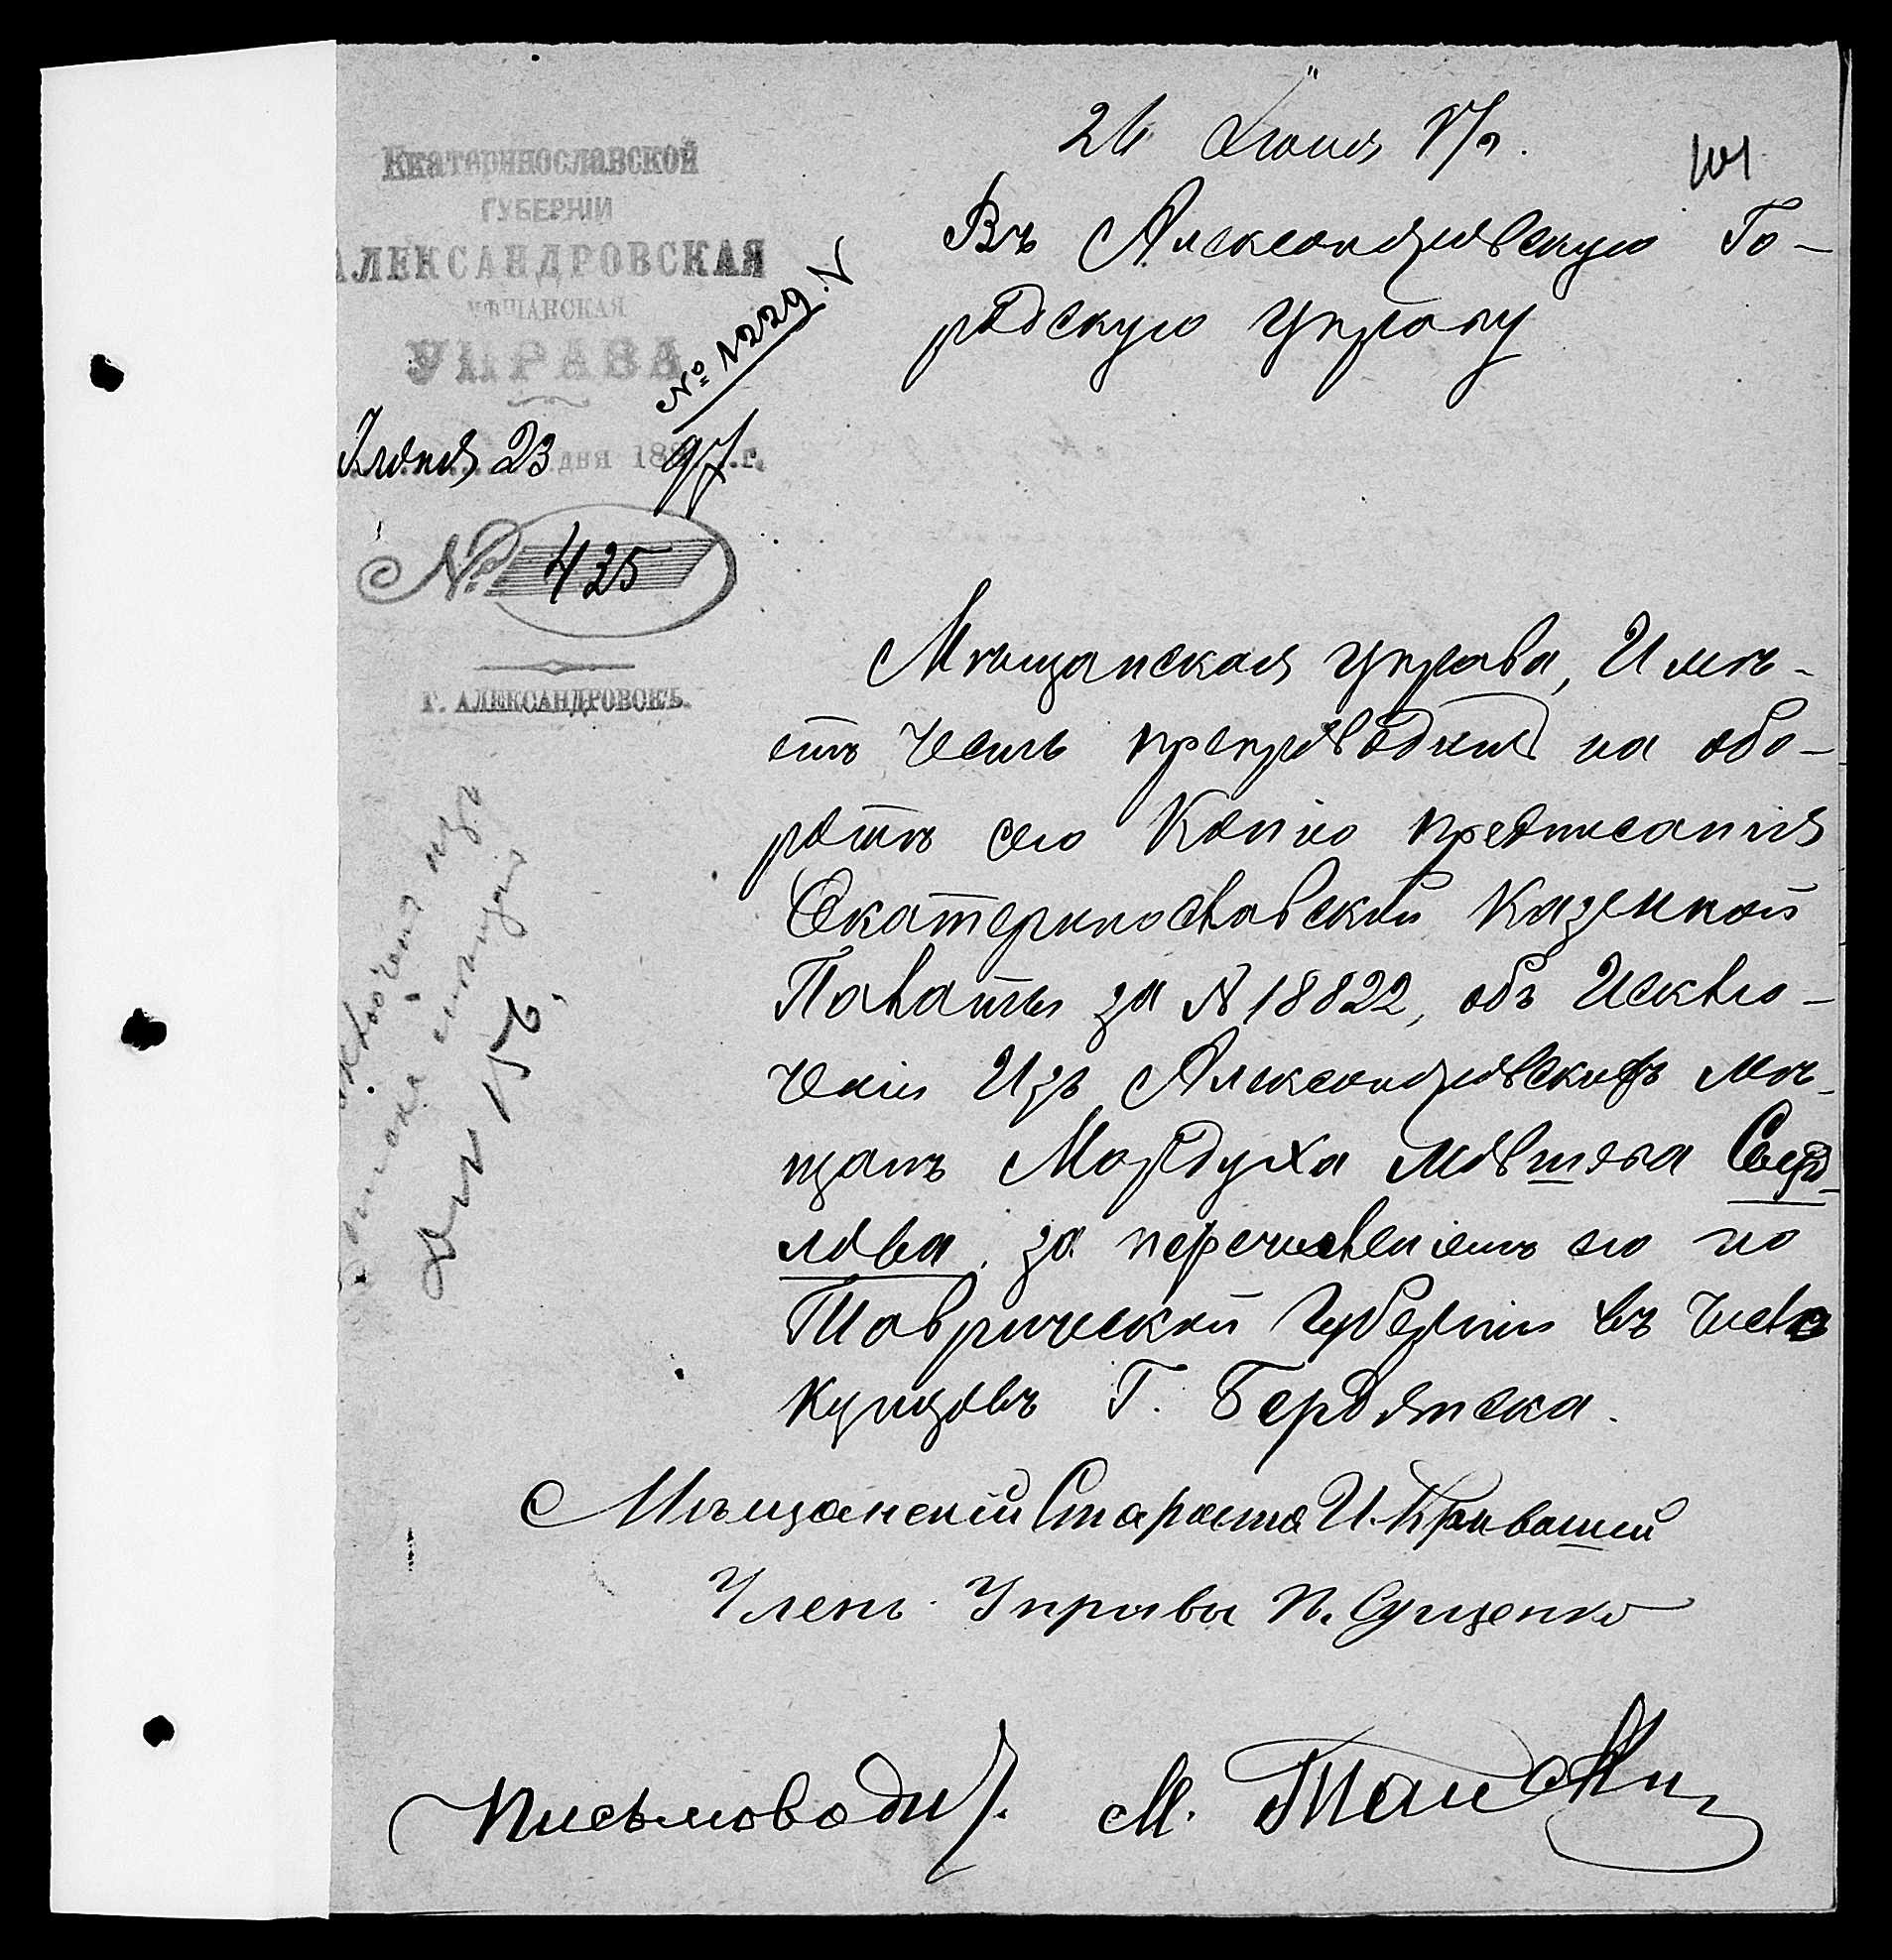 26 Июня 97 г.
101
Екатеринославской
ГУБЕРНІИ
АЛЕКСАНДРОВСКАЯ
МѢЩАНСКАЯ
УПРАВА
Іюня 23 дня 1897 г.
№ 1229
№ 425
Г. АЛЕКСАНДРОВСКЪ.
Въ Александровскую Го-
родскую Управу
Мѣщанская управа, Имѣ-
етъ честь препроводить на обо-
ротѣ сего Копію предписанія
Екатеринославской Казенной
Палаты за № 18822, объ Исклю-
ченіи Изъ Александровскихъ мѣ-
щанъ Мордуха Мовшева
лова, за перечисленіемъ его по
Таврической Губерніи въ число
купцовъ Г. Бердянска.
Мѣщанскій Староста И.
Членъ Управы П. Сущенко
Письмоводит. М.